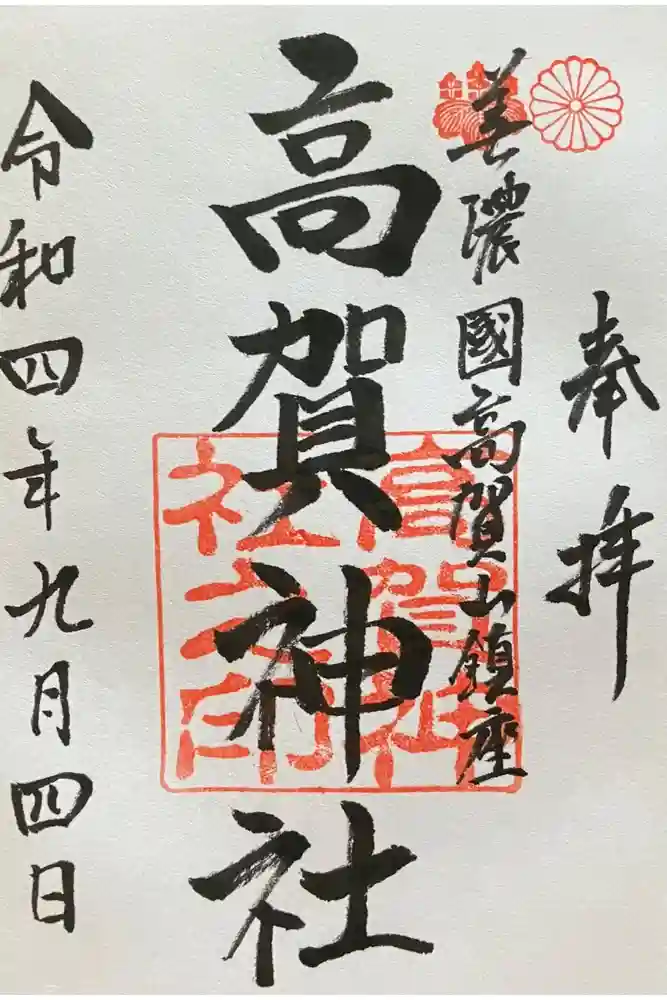 奉拝
美濃國高賀山鎮座
高賀神社
高賀神
社之印
令和四年九月四日